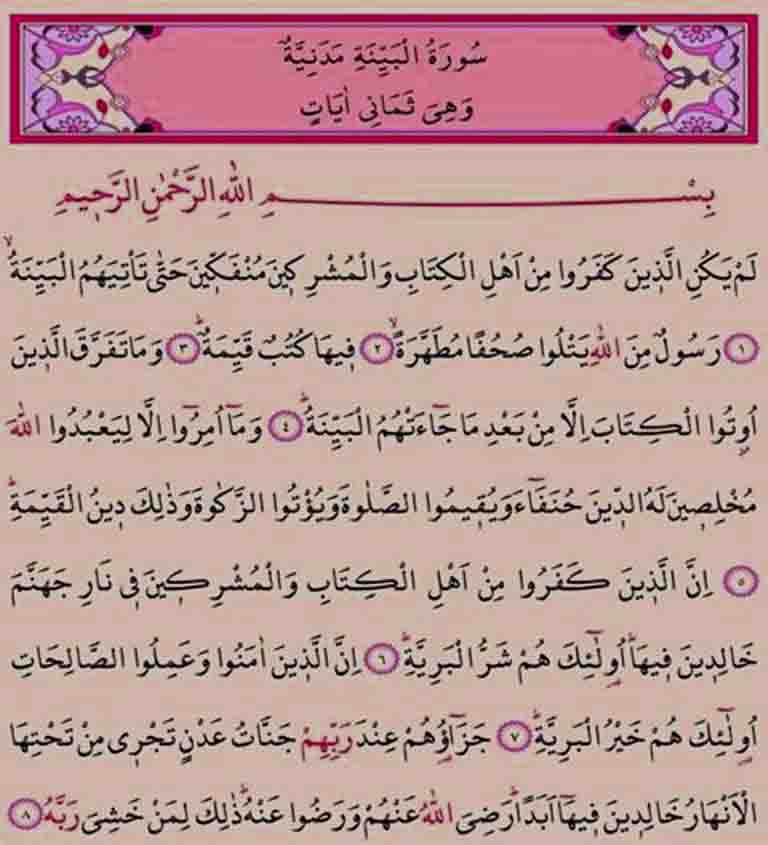 سُورَةُ الْبَيِّنَةِ مَدَنِيَّةٌ
وَهِيَ ثَمَانِي اٰيَاتٍ
بِسْمِ اللّٰهِ الرَّحْمٰنِ الرَّحٖيمِ
لَمْ يَكُنِ الَّذٖينَ كَفَرُوا مِنْ اَهْلِ الْكِتَابِ وَالْمُشْرِكٖينَ مُنْفَكّٖينَ حَتّٰى تَأْتِيَهُمُ الْبَيِّنَةُۙ
﴿١﴾ رَسُولٌ مِنَ اللّٰهِ يَتْلُوا صُحُفًا مُطَهَّرَةًۙ ﴿٢﴾ فٖيهَا كُتُبٌ قَيِّمَةٌۜ ﴿٣﴾ وَمَا تَفَرَّقَ الَّذٖينَ
اُو۫تُوا الْكِتَابَ اِلَّا مِنْ بَعْدِ مَا جَٓاءَتْهُمُ الْبَيِّنَةُۜ ﴿٤﴾ وَمَٓا اُمِرُٓوا اِلَّا لِيَعْبُدُوا اللّٰهَ
مُخْلِصٖينَ لَهُ الدّٖينَ حُنَفَٓاءَ وَيُقٖيمُوا الصَّلٰوةَ وَيُؤْتُوا الزَّكٰوةَ وَذٰلِكَ دٖينُ الْقَيِّمَةِۜ
﴿٥﴾ اِنَّ الَّذٖينَ كَفَرُوا مِنْ اَهْلِ الْكِتَابِ وَالْمُشْرِكٖينَ فٖي نَارِ جَهَنَّمَ
خَالِدٖينَ فٖيهَاۜ اُو۬لٰٓئِكَ هُمْ شَرُّ الْبَرِيَّةِۜ ﴿٦﴾ اِنَّ الَّذٖينَ اٰمَنُوا وَعَمِلُوا الصَّالِحَاتِ
اُو۬لٰٓئِكَ هُمْ خَيْرُ الْبَرِيَّةِۜ ﴿٧﴾ جَزَٓاؤُ۬هُمْ عِنْدَ رَبِّهِمْ جَنَّاتُ عَدْنٍ تَجْرٖي مِنْ تَحْتِهَا
الْاَنْهَارُ خَالِدٖينَ فٖيهَٓا اَبَدًاۜ رَضِيَ اللّٰهُ عَنْهُمْ وَرَضُوا عَنْهُۜ ذٰلِكَ لِمَنْ خَشِيَ رَبَّهُ ﴿٨﴾